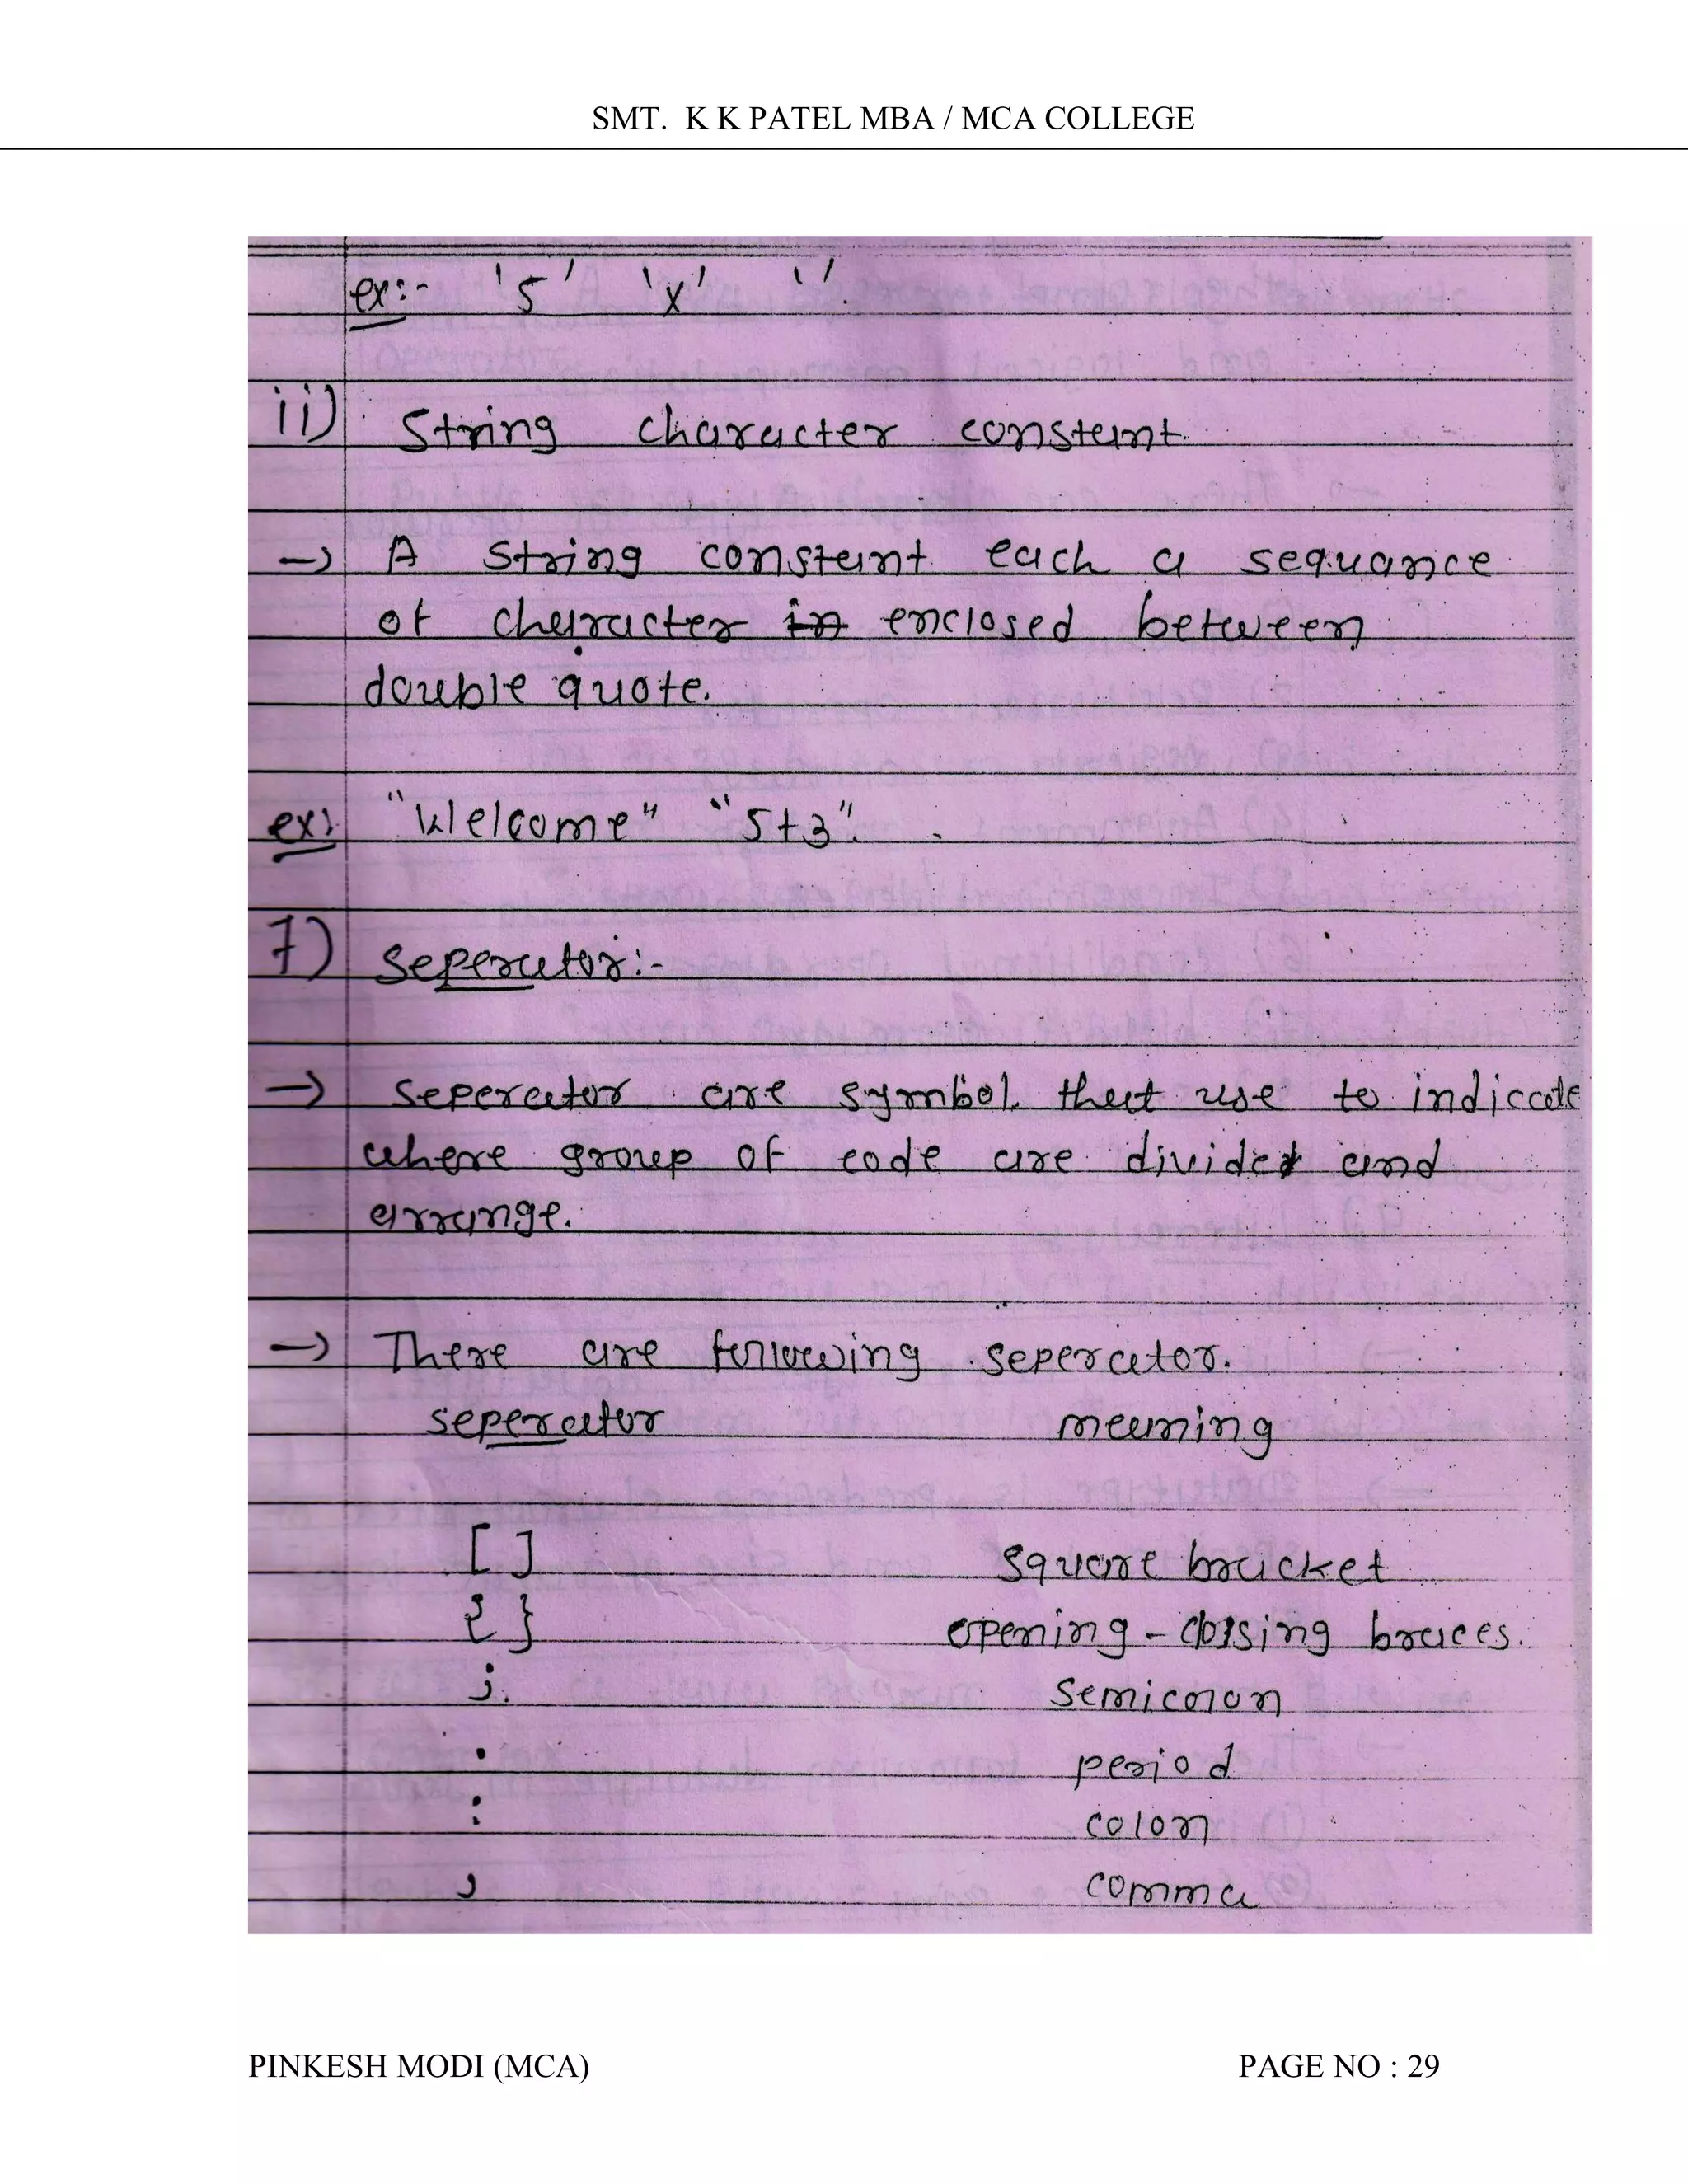 SMT. K K PATEL MBA / MCA COLLEGE
ex:- '5' 'x' ' '.
ii) String character constant.
→ A string constant each a sequance
of character in enclosed between
double quote.
ex: "Welcome" "5+3".
7) Seperator:-
→ seperator are symbol that use to indicate
where group of code are divided and
arrange.
→ There are following seperator.
seperator meaning
[ ] square bracket
{ } opening - closing braces.
; semicolon
. period
: colon
, comma
PINKESH MODI (MCA) PAGE NO : 29